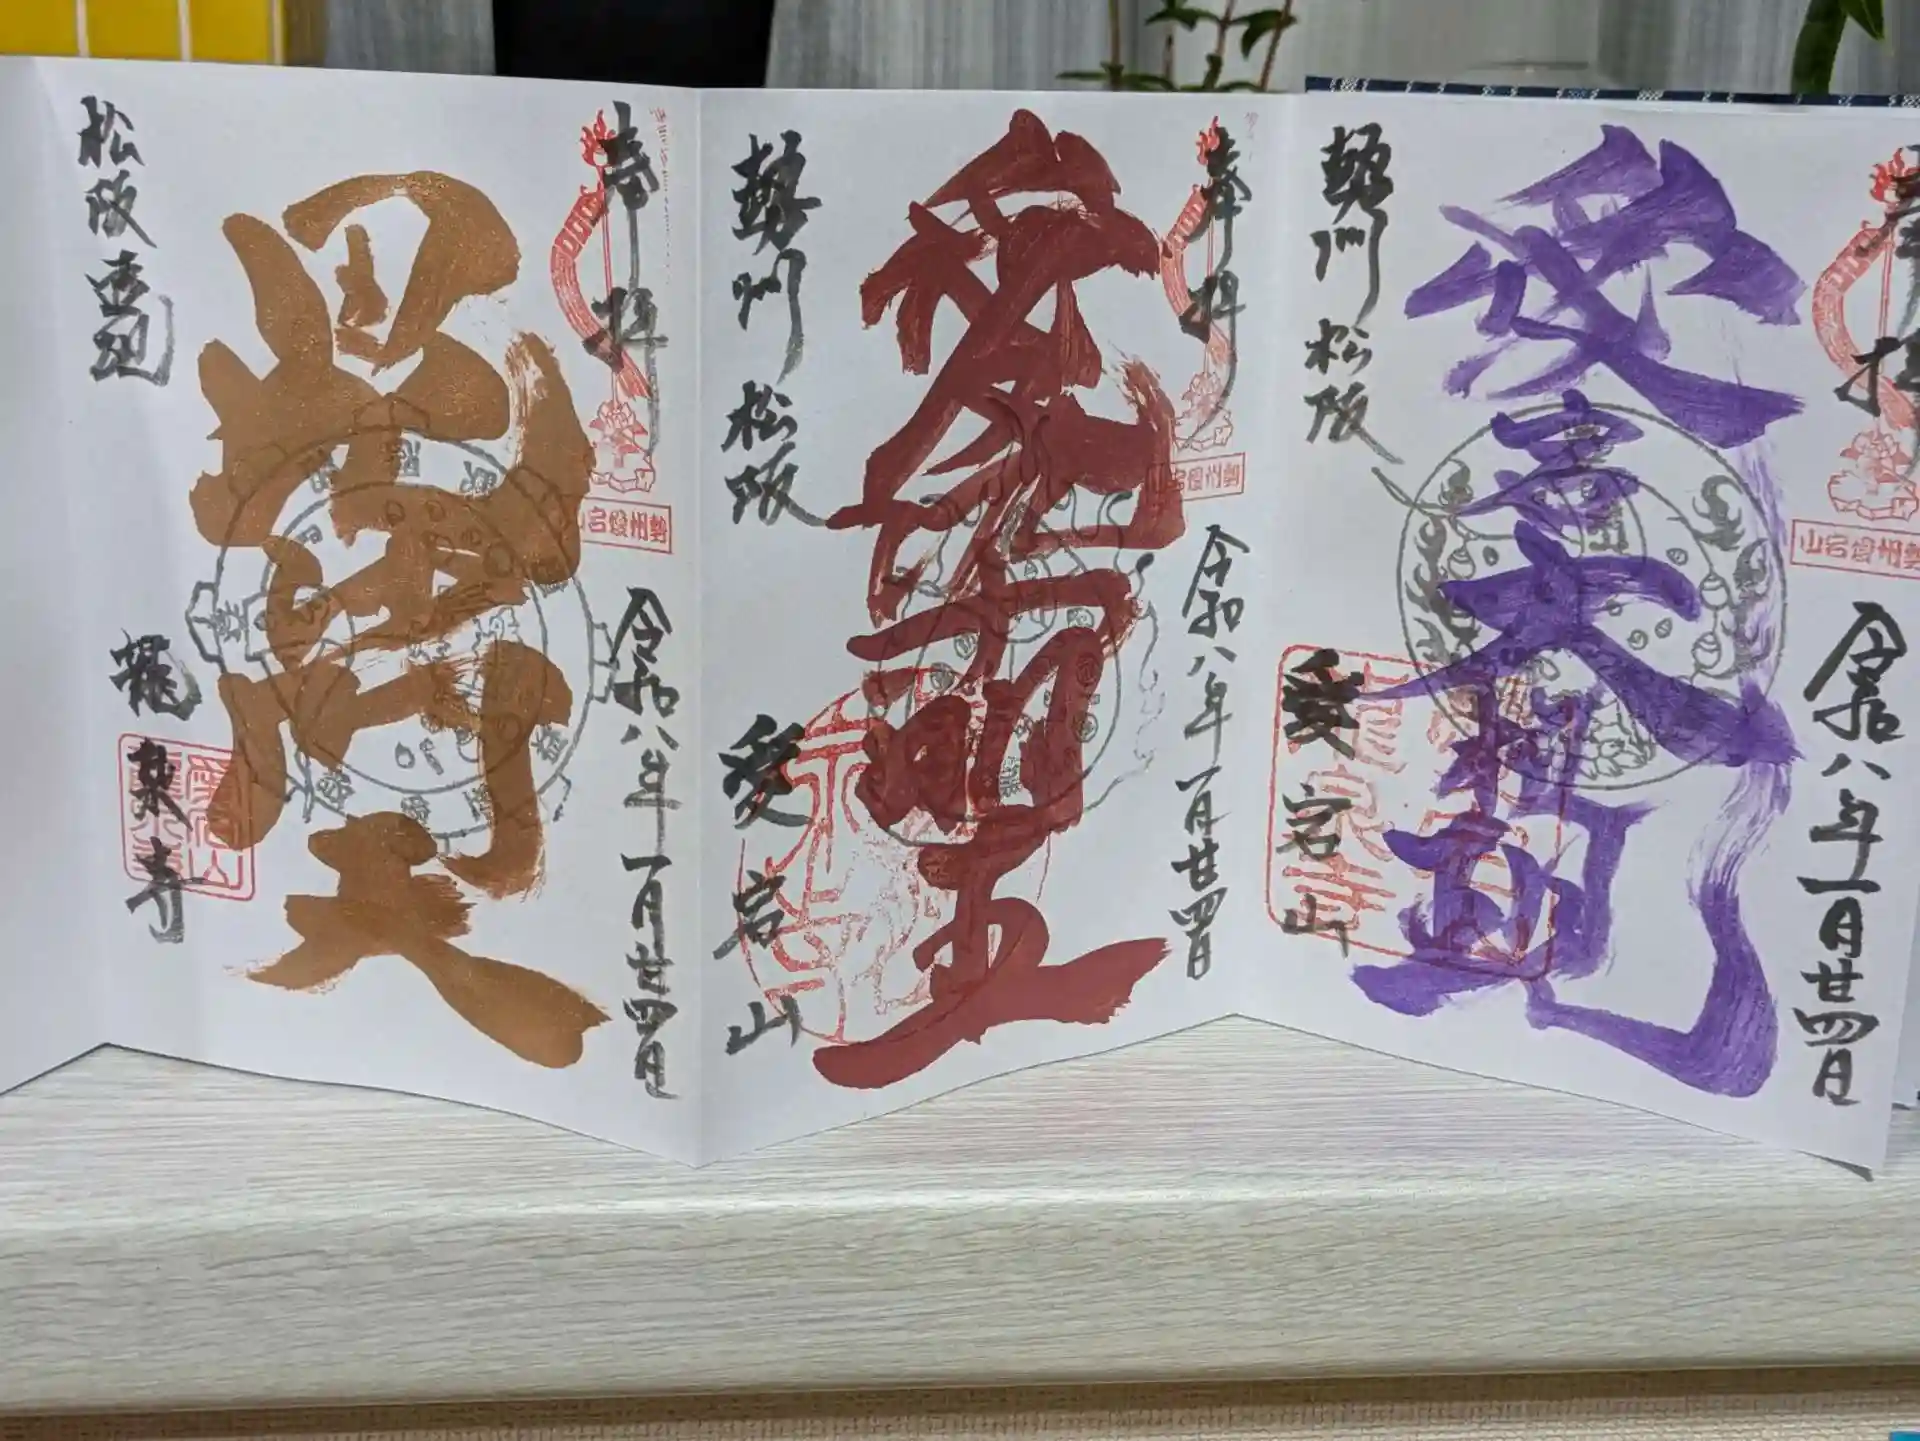 奉拝
勢州愛宕山
令和八年一月廿四日
愛宕大権現
勢州 松阪
愛宕山
奉拝
勢州愛宕山
令和八年一月廿四日
愛染明王
勢州 松阪
愛宕山
奉拝
勢州愛宕山
令和八年一月廿四日
毘沙門天
松阪
龍泉寺